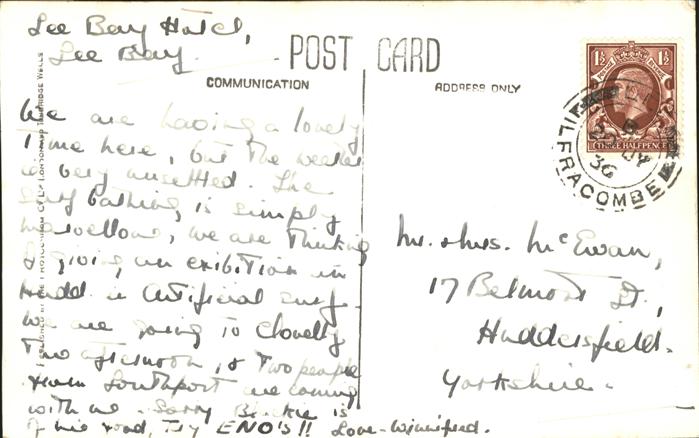 Lee Bay Hotel,
Lee Bay.
POST CARD
COMMUNICATION
ADDRESS ONLY
We are having a lovely
time here, but the weather
is very unsettled. The
surf bathing is simply
marvellous, we are thinking
of giving an exibition in
Hudd. in Artificial surf.
We are going to Clovelly
this afternoon, & two people
from Southport are coming
with us. Sorry Blackie is
off his food, Try ENO'S!! Love - Winnifred.
Mr. & Mrs. McEwan,
17 Belmont St.,
Huddersfield.
Yorkshire.
1½ 1½
THREE HALFPENCE
ILFRACOMBE
JY
36